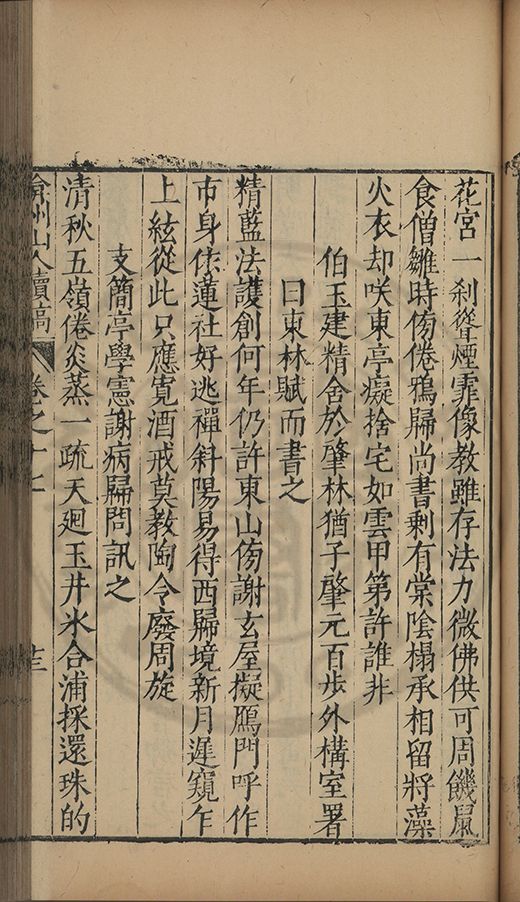 花宮一剎聳煙霏像教雖存法力微佛供可周饑鼠
食僧雛時傍倦鴉歸尚書剩有棠陰榻承相留將藻
火衣却咲東亭癡捨宅如雲甲第許誰非
伯玉建精舍於肇林猶子肇元百步外構室署
曰東林賦而書之
精藍法護創何年仍許東山傍謝玄屋擬鴈門呼作
市身依蓮社好逃禪斜陽易得西歸境新月遲窺乍
上絃從此只應寬酒戒莫教陶令廢周旋
支簡亭學憲謝病歸問訊之
清秋五嶺倦炎蒸一疏天廻玉井氷合浦採還珠的
弇州山人續稿 卷之十七 十三